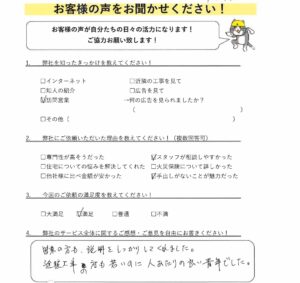 お客様の声をお聞かせください！
お客様の声が自分たちの日々の活力になります！
ご協力お願い致します！
1. 弊社を知ったきっかけを教えてください！
□インターネット □近隣の工事を見て
□知人の紹介 □広告を見て
☑訪問営業 →何の広告を見られましたか？
(
□その他（
2. 弊社にご依頼いただいた理由を教えてください！（複数回答可）
□専門性が高そうだった ☑スタッフが相談しやすかった
□住宅についての悩みを解決してくれた □火災保険について詳しかった
□他社様に比べ金額が安かった ☑手出しがないことが魅力だった
3. 今回のご依頼の満足度を教えてください！
□大満足 ☑満足 □普通 □不満
4. 弊社のサービス全体に関するご感想・ご意見を自由にお書きください！
営業の方も、説明をしっかりしてくれました。
方も若いのに人あたりの良い青年でした。